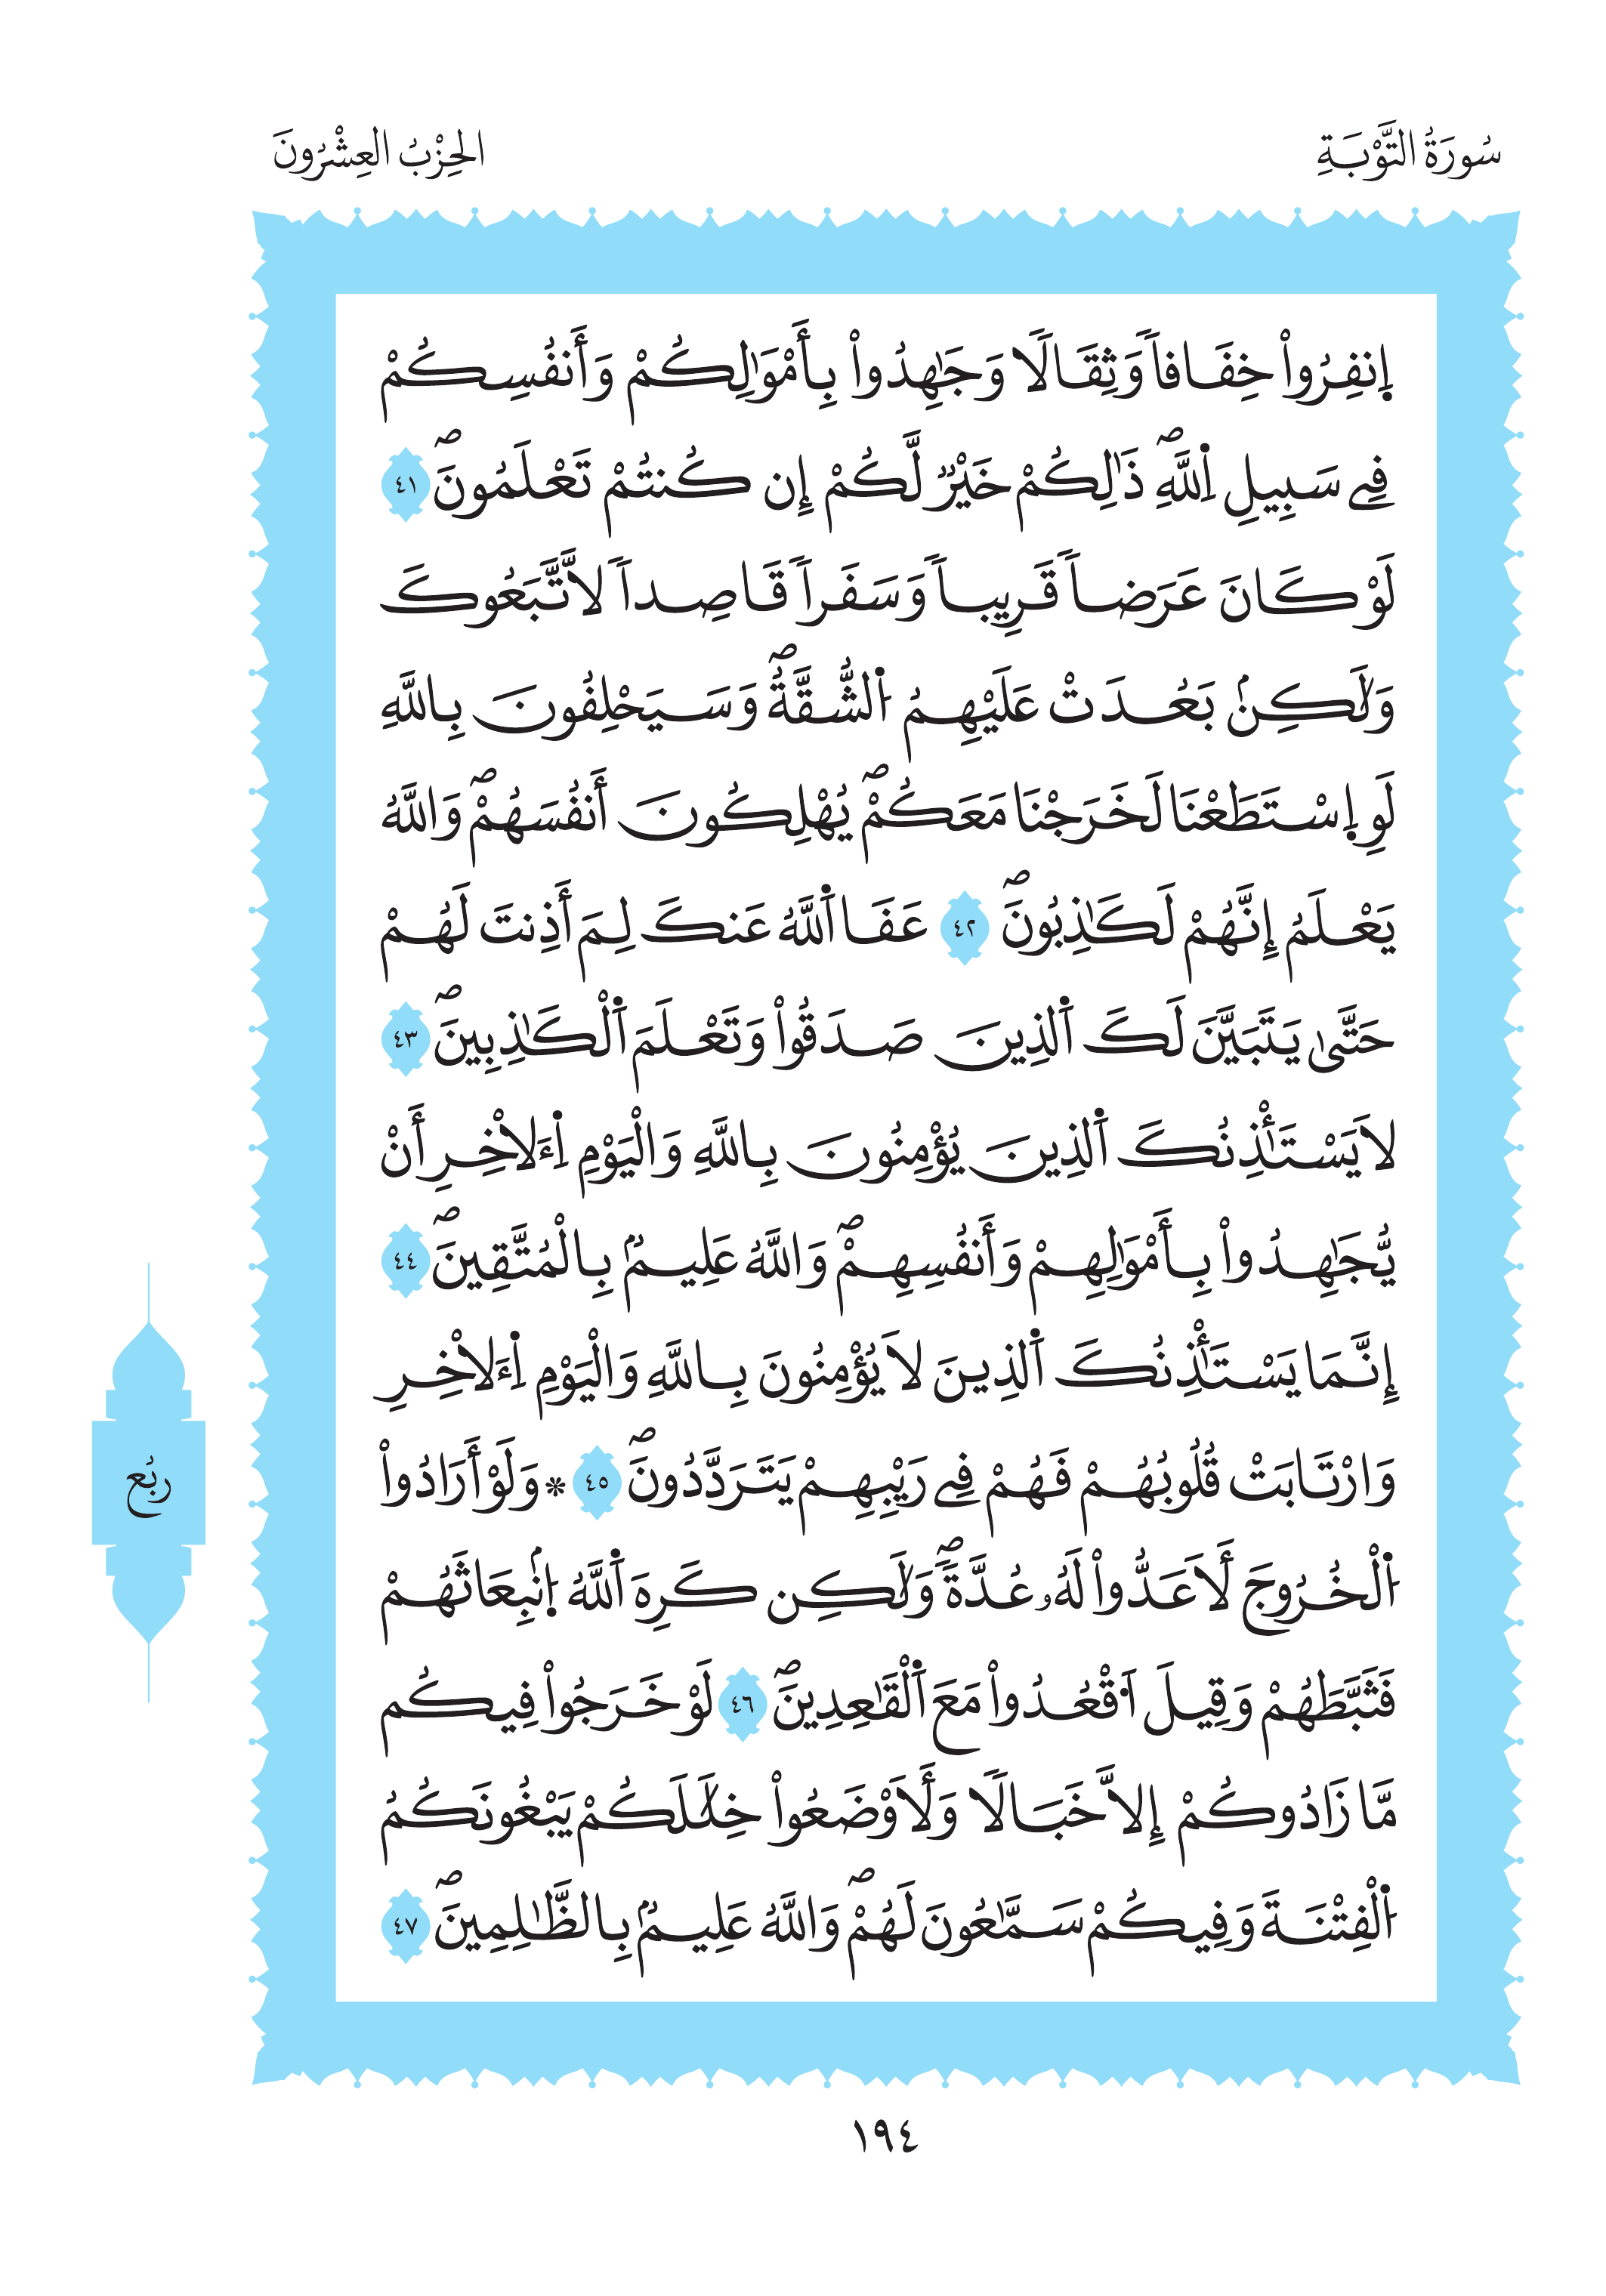 سُورَةُ التَّوْبَةِ
الحِزْبُ العِشْرُونَ
اِ۪نفِرُواْ خِفَافاٗ وَثِقَالٗا وَجَٰهِدُواْ بِأَمْوَٰلِكُمْ وَأَنفُسِكُمْ
فِے سَبِيلِ اِ۬للَّهِۖ ذَٰلِكُمْ خَيْرٞ لَّكُمْ إِن كُنتُمْ تَعْلَمُونَۖ ٤١
لَوْ كَانَ عَرَضاٗ قَرِيباٗ وَسَفَراٗ قَاصِداٗ لاَّتَّبَعُوكَ
وَلَٰكِنۢ بَعُدَتْ عَلَيْهِمُ اُ۬لشُّقَّةُۖ وَسَيَحْلِفُونَ بِاللَّهِ
لَوِ اِ۪سْتَطَعْنَا لَخَرَجْنَا مَعَكُمْۖ يُهْلِكُونَ أَنفُسَهُمْۖ وَاللَّهُ
يَعْلَمُ إِنَّهُمْ لَكَٰذِبُونَۖ ٤٢ عَفَا اَ۬للَّهُ عَنكَ لِمَ أَذِنتَ لَهُمْ
حَتَّىٰ يَتَبَيَّنَ لَكَ اَ۬لذِينَ صَدَقُواْ وَتَعْلَمَ اَ۬لْكَٰذِبِينَۖ ٤٣
لاَ يَسْتَٰٔذِنُكَ اَ۬لذِينَ يُؤْمِنُونَ بِاللَّهِ وَالْيَوْمِ اِ۬ءَلاْخِرِ أَنْ
يُّجَٰهِدُواْ بِأَمْوَٰلِهِمْ وَأَنفُسِهِمْۖ وَاللَّهُ عَلِيمُۢ بِالْمُتَّقِينَۖ ٤٤
إِنَّمَا يَسْتَٰٔذِنُكَ اَ۬لذِينَ لاَ يُؤْمِنُونَ بِاللَّهِ وَالْيَوْمِ اِ۬ءَلاْخِرِ
وَارْتَابَتْ قُلُوبُهُمْ فَهُمْ فِے رَيْبِهِمْ يَتَرَدَّدُونَۖ ٤٥ * وَلَوْ أَرَادُواْ
رُبُع
اُ۬لْخُرُوجَ لَأَعَدُّواْ لَهُۥ عُدَّةٗۖ وَلَٰكِن كَرِهَ اَ۬للَّهُ اُ۪نۢبِعَاثَهُمْ
فَثَبَّطَهُمْ وَقِيلَ اَ۟قْعُدُواْ مَعَ اَ۬لْقَٰعِدِينَۖ ٤٦ لَوْ خَرَجُواْ فِيكُم
مَّا زَادُوكُمْ إِلاَّ خَبَالٗا وَلَأَوْضَعُواْ خِلَٰلَكُمْ يَبْغُونَكُمُ
اُ۬لْفِتْنَةَ وَفِيكُمْ سَمَّٰعُونَ لَهُمْۖ وَاللَّهُ عَلِيمُۢ بِالظَّٰلِمِينَۖ ٤٧
١٩٤